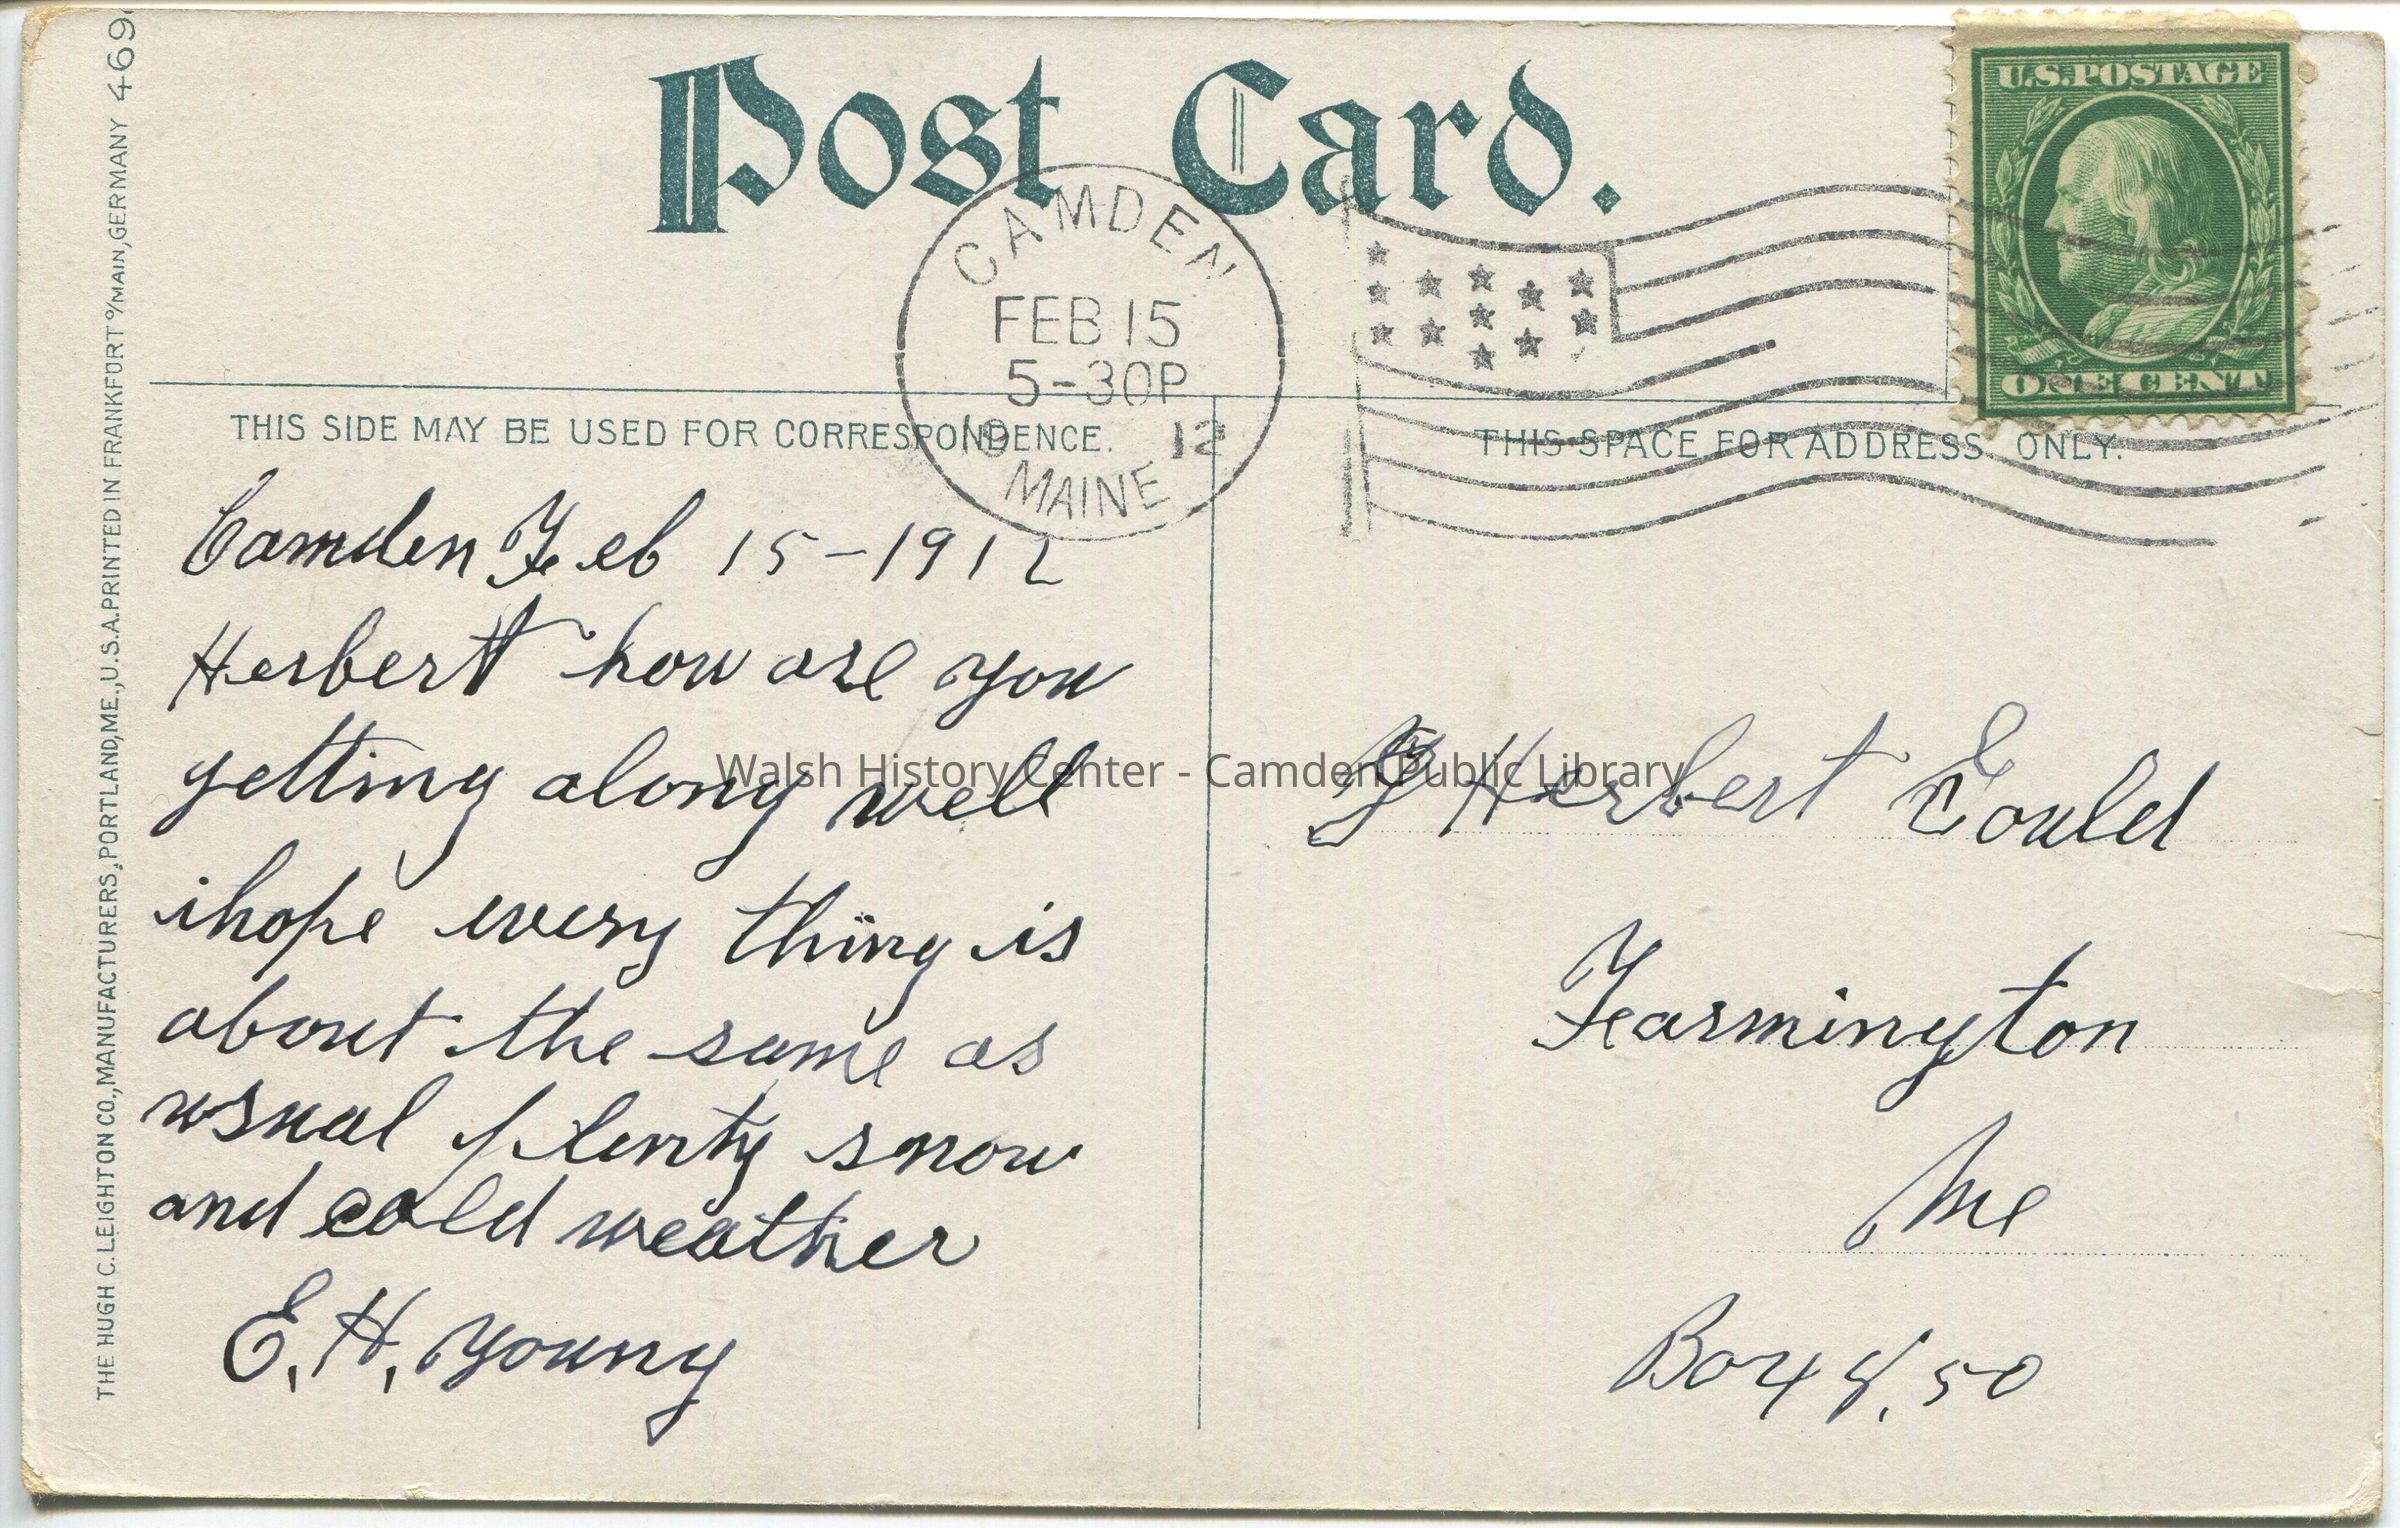 THE HUGH C. LEIGHTON CO., MANUFACTURERS, PORTLAND, ME., U.S.A. PRINTED IN FRANKFURT o/MAIN, GERMANY 469
Post Card.
U.S. POSTAGE
ONE CENT
CAMDEN
FEB 15
5-30P
19 12
MAINE
THIS SIDE MAY BE USED FOR CORRESPONDENCE.
THIS SPACE FOR ADDRESS ONLY.
Camden Feb 15-1912
Herbert how are you
getting along well
ihope every thing is
about the same as
usual plenty snow
and cold weather
E. H. Young
Herbert Gould
Farmington
Me
Box 8,50
Walsh History Center - Camden Public Library